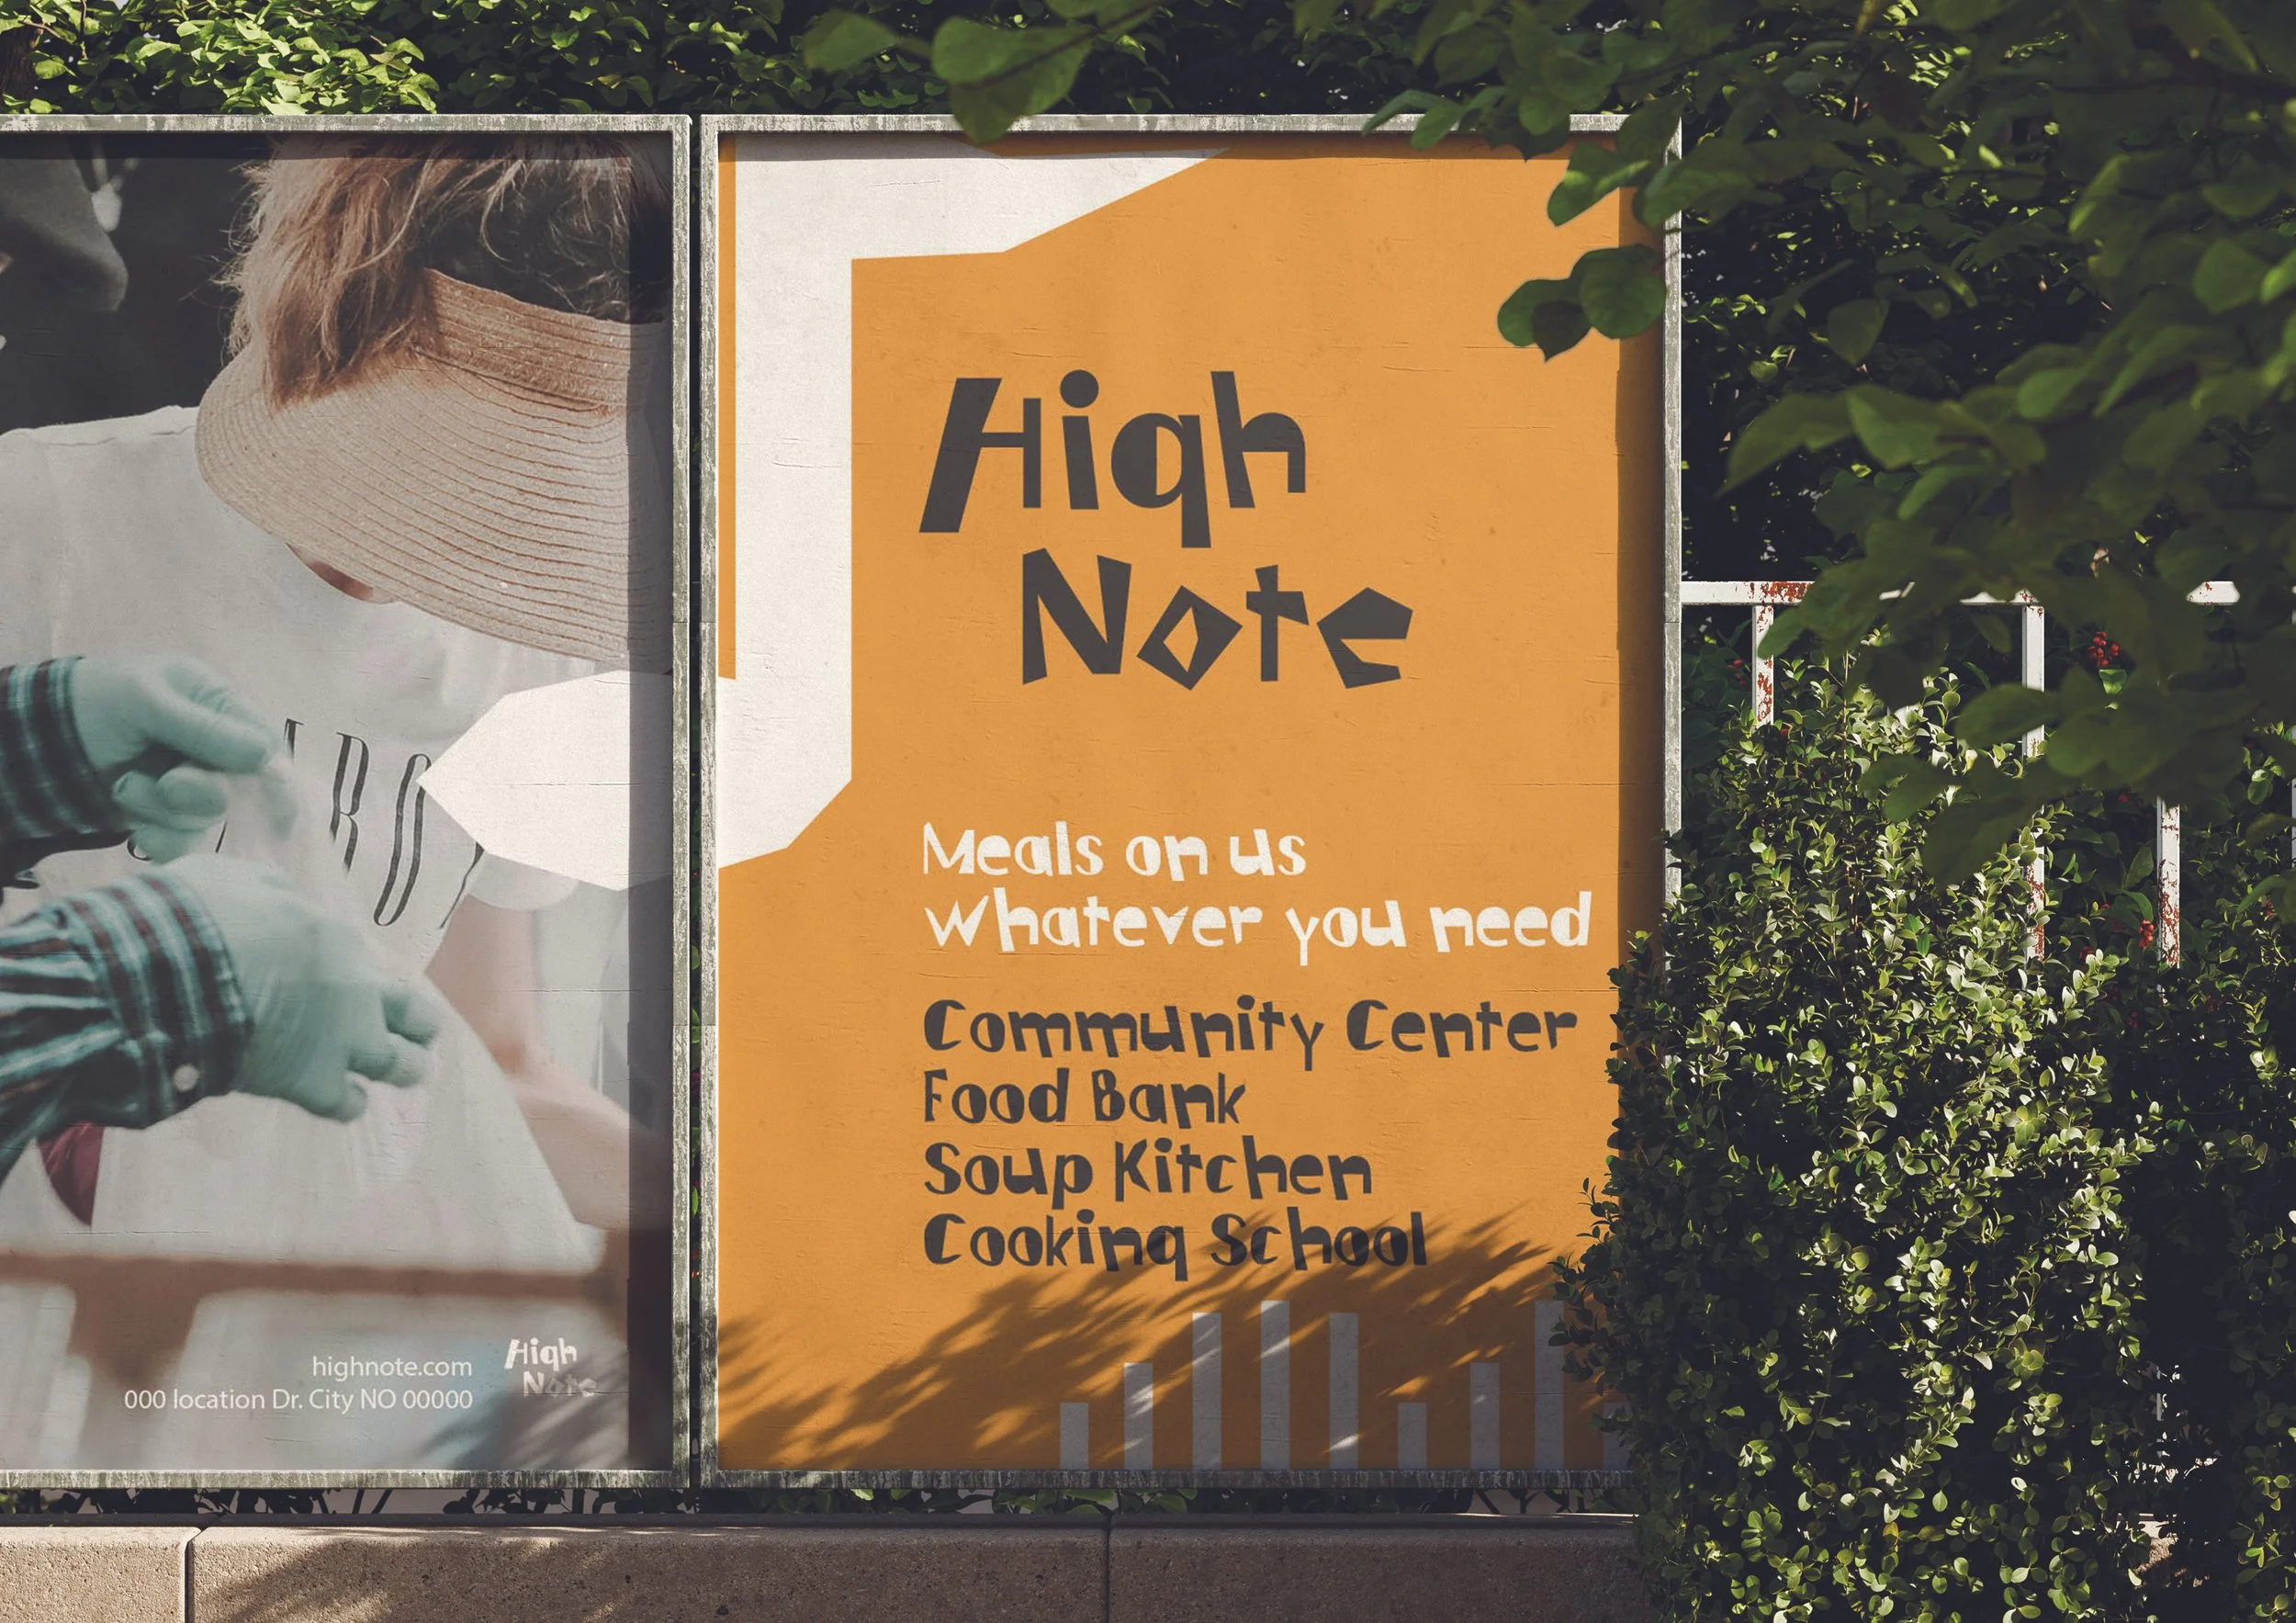 highnote.com
000 location Dr. City NO 00000
High
Note
High
Note
Meals on us
Whatever you need
Community Center
Food Bank
Soup Kitchen
Cooking School